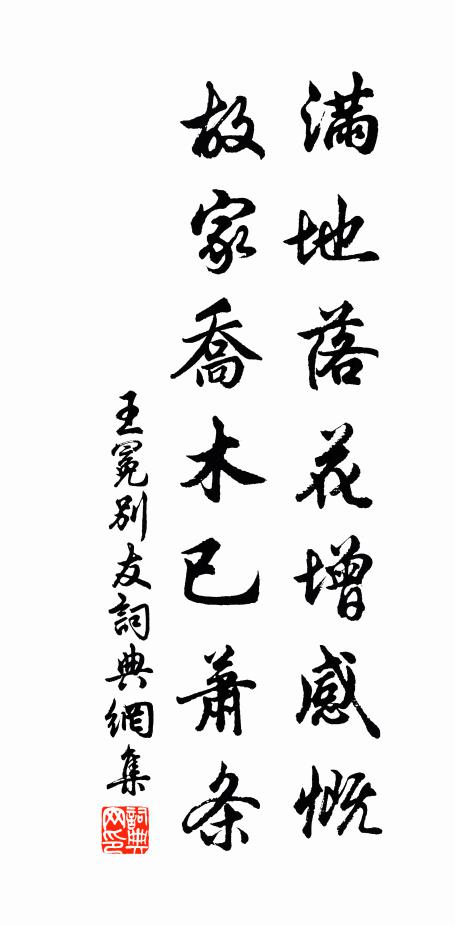 满地落花增感慨
故家乔木已萧条
王冕别友詞典網集
詞典网印